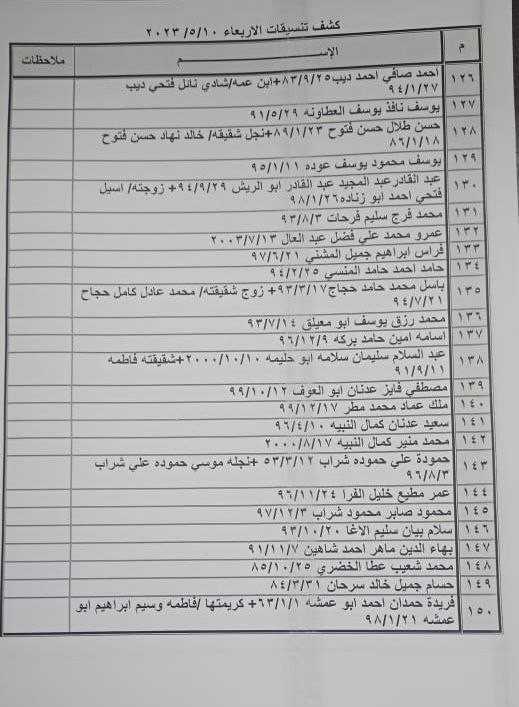 كشف تنسيقات الاربعاء ٢٠٢٣/٥/١٠
م الإســـم ملاحظات
١٢٦ احمد صافي احمد ديب٨٣/٩/٢٥+ابن عمه/شادي نائل فتحي ديب
٩٤/١/٢٧
١٢٧ يوسف نافذ يوسف العطاونه ٩١/٥/٢٩
١٢٨ حسن طلال حسن فتوح ٨٩/١/٢٣+نجل شقيقه/ خالد نهاد حسن فتوح
٨٦/١/١٨
١٢٩ يوسف محمود يوسف عوده ٩٥/١/١١
١٣٠ عبد القادر عبد المجيد عبد القادر ابو الريش ٩٤/٩/٢٩+ زوجته/ اسيل
فتحي احمد ابو زناده٩٨/١/٢٦
١٣١ محمد فرج سليم فرحات ٩٣/٨/٣
١٣٢ عمرو محمد علي فضل عبد العال ٢٠٠٣/٧/١٣
١٣٣ فراس ابراهيم جميل المشني ٩٧/٦/٢١
١٣٤ حامد احمد حامد المنسي ٩٤/٢/٢٥
١٣٥ باسل محمد حامد حجاج٩٣/٣/١٧+ زوج شقيقته/ محمد عادل كامل حجاج
٩٤/٧/٢١
١٣٦ محمد رزق يوسف ابو معيلق ٩٣/٧/١٤
١٣٧ اسامه امين حامد بركه ٩٦/١٢/٩
١٣٨ عبد السلام سليمان سلامه ابو حليمه ٢٠٠٠/١٠/١٠+شقيقته فاطمه
٩١/٩/١١
١٣٩ مصطفي فايز عدنان ابو العوف ٩٩/١٠/١٢
١٤٠ ملك عماد محمد مطر ٩٩/١٢/١٧
١٤١ سعيد عدنان كمال النبيه ٩٦/٤/١٠
١٤٢ محمد منير كمال النبيه ٢٠٠٠/٨/١٧
١٤٣ حمودة علي حموده شراب ٥٣/٣/١٢ +نجله موسي حموده علي شراب
٩٦/٨/٣
١٤٤ عمر مطيع خليل الفرا ٩٦/١١/٢٤
١٤٥ محمود صابر محمود شراب ٩٧/١٢/٣
١٤٦ سلام بيان سليم الاغا ٩٣/١٠/٢٠
١٤٧ بهاء الدين ماهر احمد شاهين ٩١/١١/٧
١٤٨ محمد شعيب عطا الخضري ٨٥/١٠/٢٥
١٤٩ حسام جميل خالد سرحان ٨٤/٣/٣١
١٥٠ فريدة حمدان احمد ابو عمشه ٦٣/١/١+ كريمتها /فاطمه وسيم ابراهيم ابو
عمشه ٩٨/١/٢١